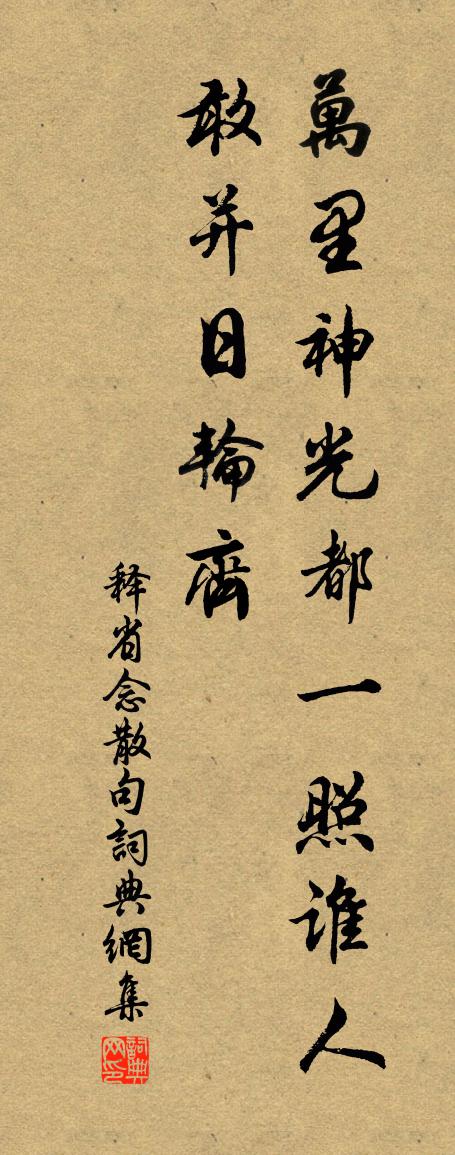 萬里神光都一照誰人
敢并日輪齊
释省念散句詞典網集
詞典网印